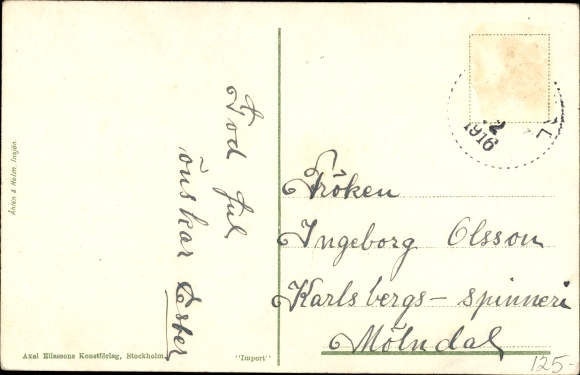 God Jul
önskar Ester
Fröken
Ingeborg Olsson
Karlsbergs-spinneri
Mölndal
Axel Eliassons Konstförlag, Stockholm.
"Import"
12
1916
L
125-